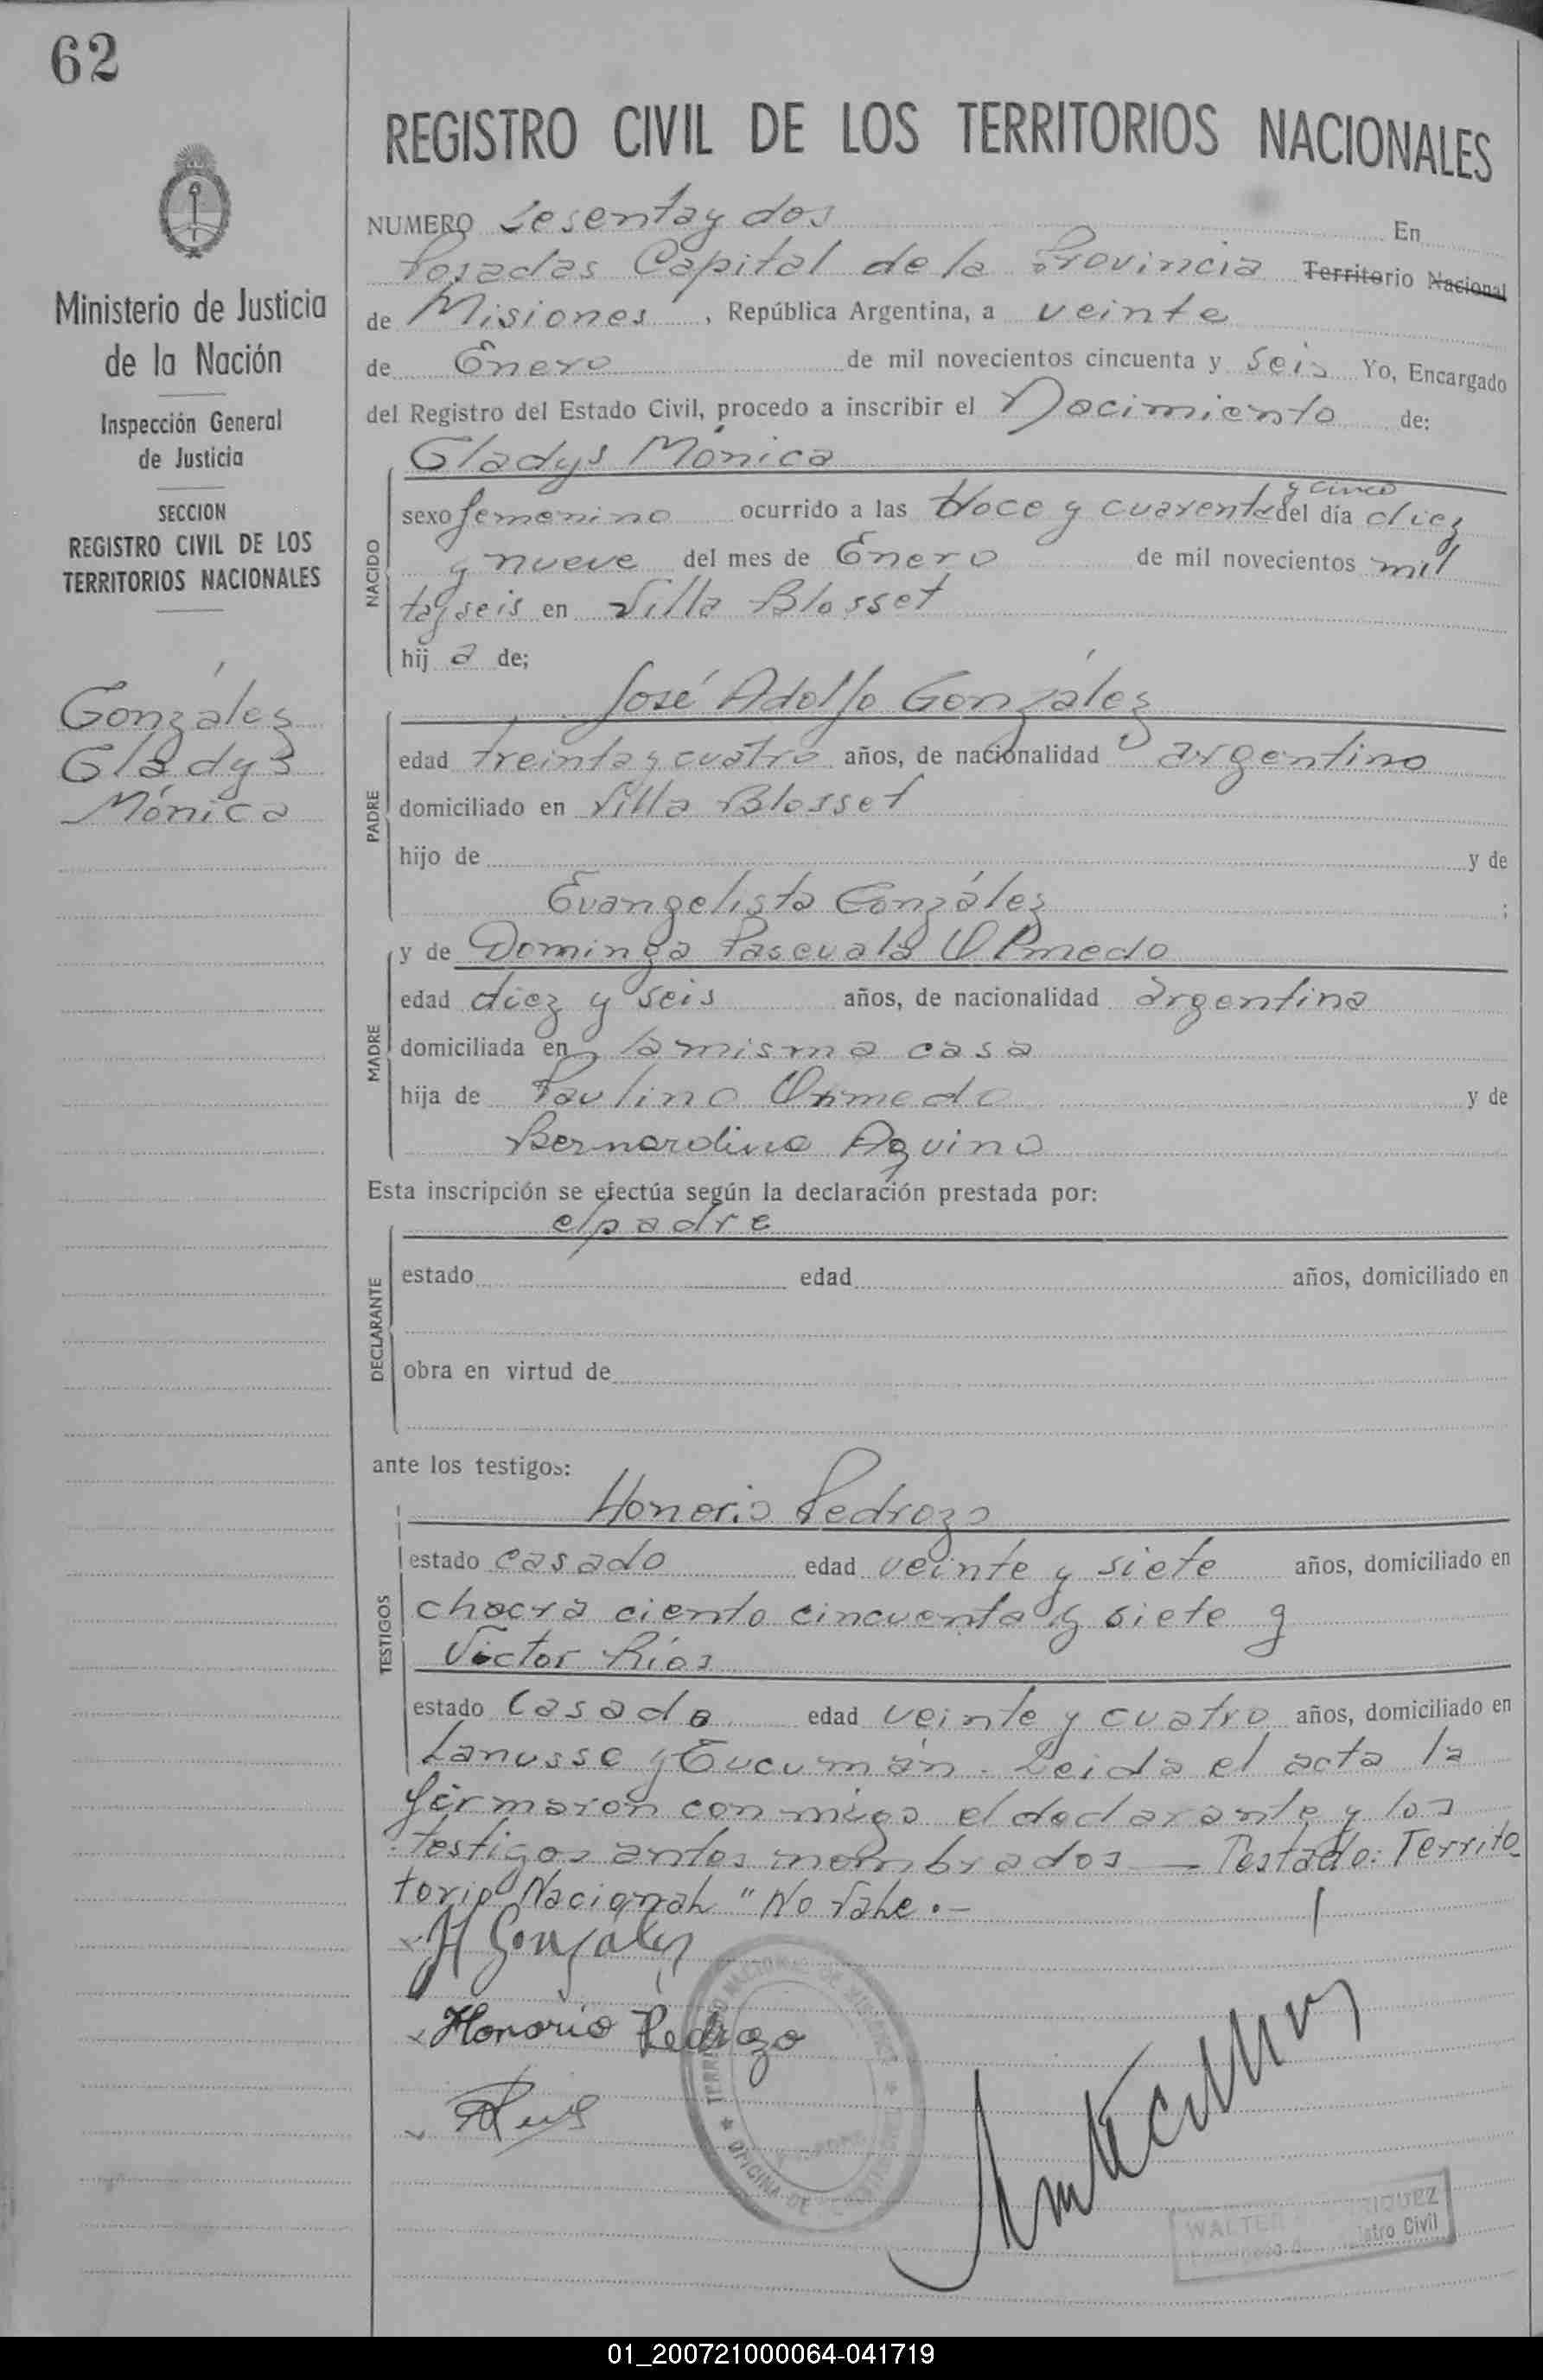 62
REGISTRO CIVIL DE LOS TERRITORIOS NACIONALES
Ministerio de Justicia
de la Nación
Inspección General
de Justicia
SECCION
REGISTRO CIVIL DE LOS
TERRITORIOS NACIONALES
González
Gladys
Mónica
NUMERO Sesenta y dos En
Posadas Capital de la Provincia Territorio Nacional
de Misiones, República Argentina, a veinte
de Enero de mil novecientos cincuenta y seis Yo, Encargado
del Registro del Estado Civil, procedo a inscribir el Nacimiento de:
Gladys Mónica
NACIDO
y cinco
sexo femenino ocurrido a las doce y cuarenta del día diez
y nueve del mes de Enero de mil novecientos mil
tayseis en Villa Blosset
hij a de;
José Adolfo González
PADRE
edad treinta y cuatro años, de nacionalidad argentino
domiciliado en Villa Blosset
hijo de y de
Evangelista González ;
y de Dominga Pascuala Olmedo
MADRE
edad diez y seis años, de nacionalidad argentina
domiciliada en la misma casa
hija de Paulino Olmedo y de
Bernardina Aquino
Esta inscripción se efectúa según la declaración prestada por:
el padre
DECLARANTE
estado edad años, domiciliado en
obra en virtud de
ante los testigos:
Honorio Pedrozo
TESTIGOS
estado casado edad veinte y siete años, domiciliado en
chacra ciento cincuenta y siete y
Victor Ríos
estado casado edad veinte y cuatro años, domiciliado en
Lanusse y Tucumán. Leida el acta la
firmaron conmigo el declarante y los
testigos antes nombrados — Testado: Territo
torio Nacional "No Vale.-
González
Honorio Pedrozo
TERRITORIO NACIONAL DE MISIONES
OFICINA DE
WALTER RIQUEZ
istro Civil
01_200721000064-041719